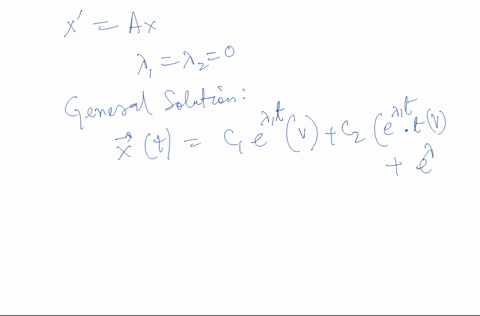 x' = Ax
λ₁ = λ₂ = 0
General Solution:
x⃗ (t) = c₁ e^{λ₁t} (v) + c₂ (e^{λ₁t} · t (v)
+ e^λ